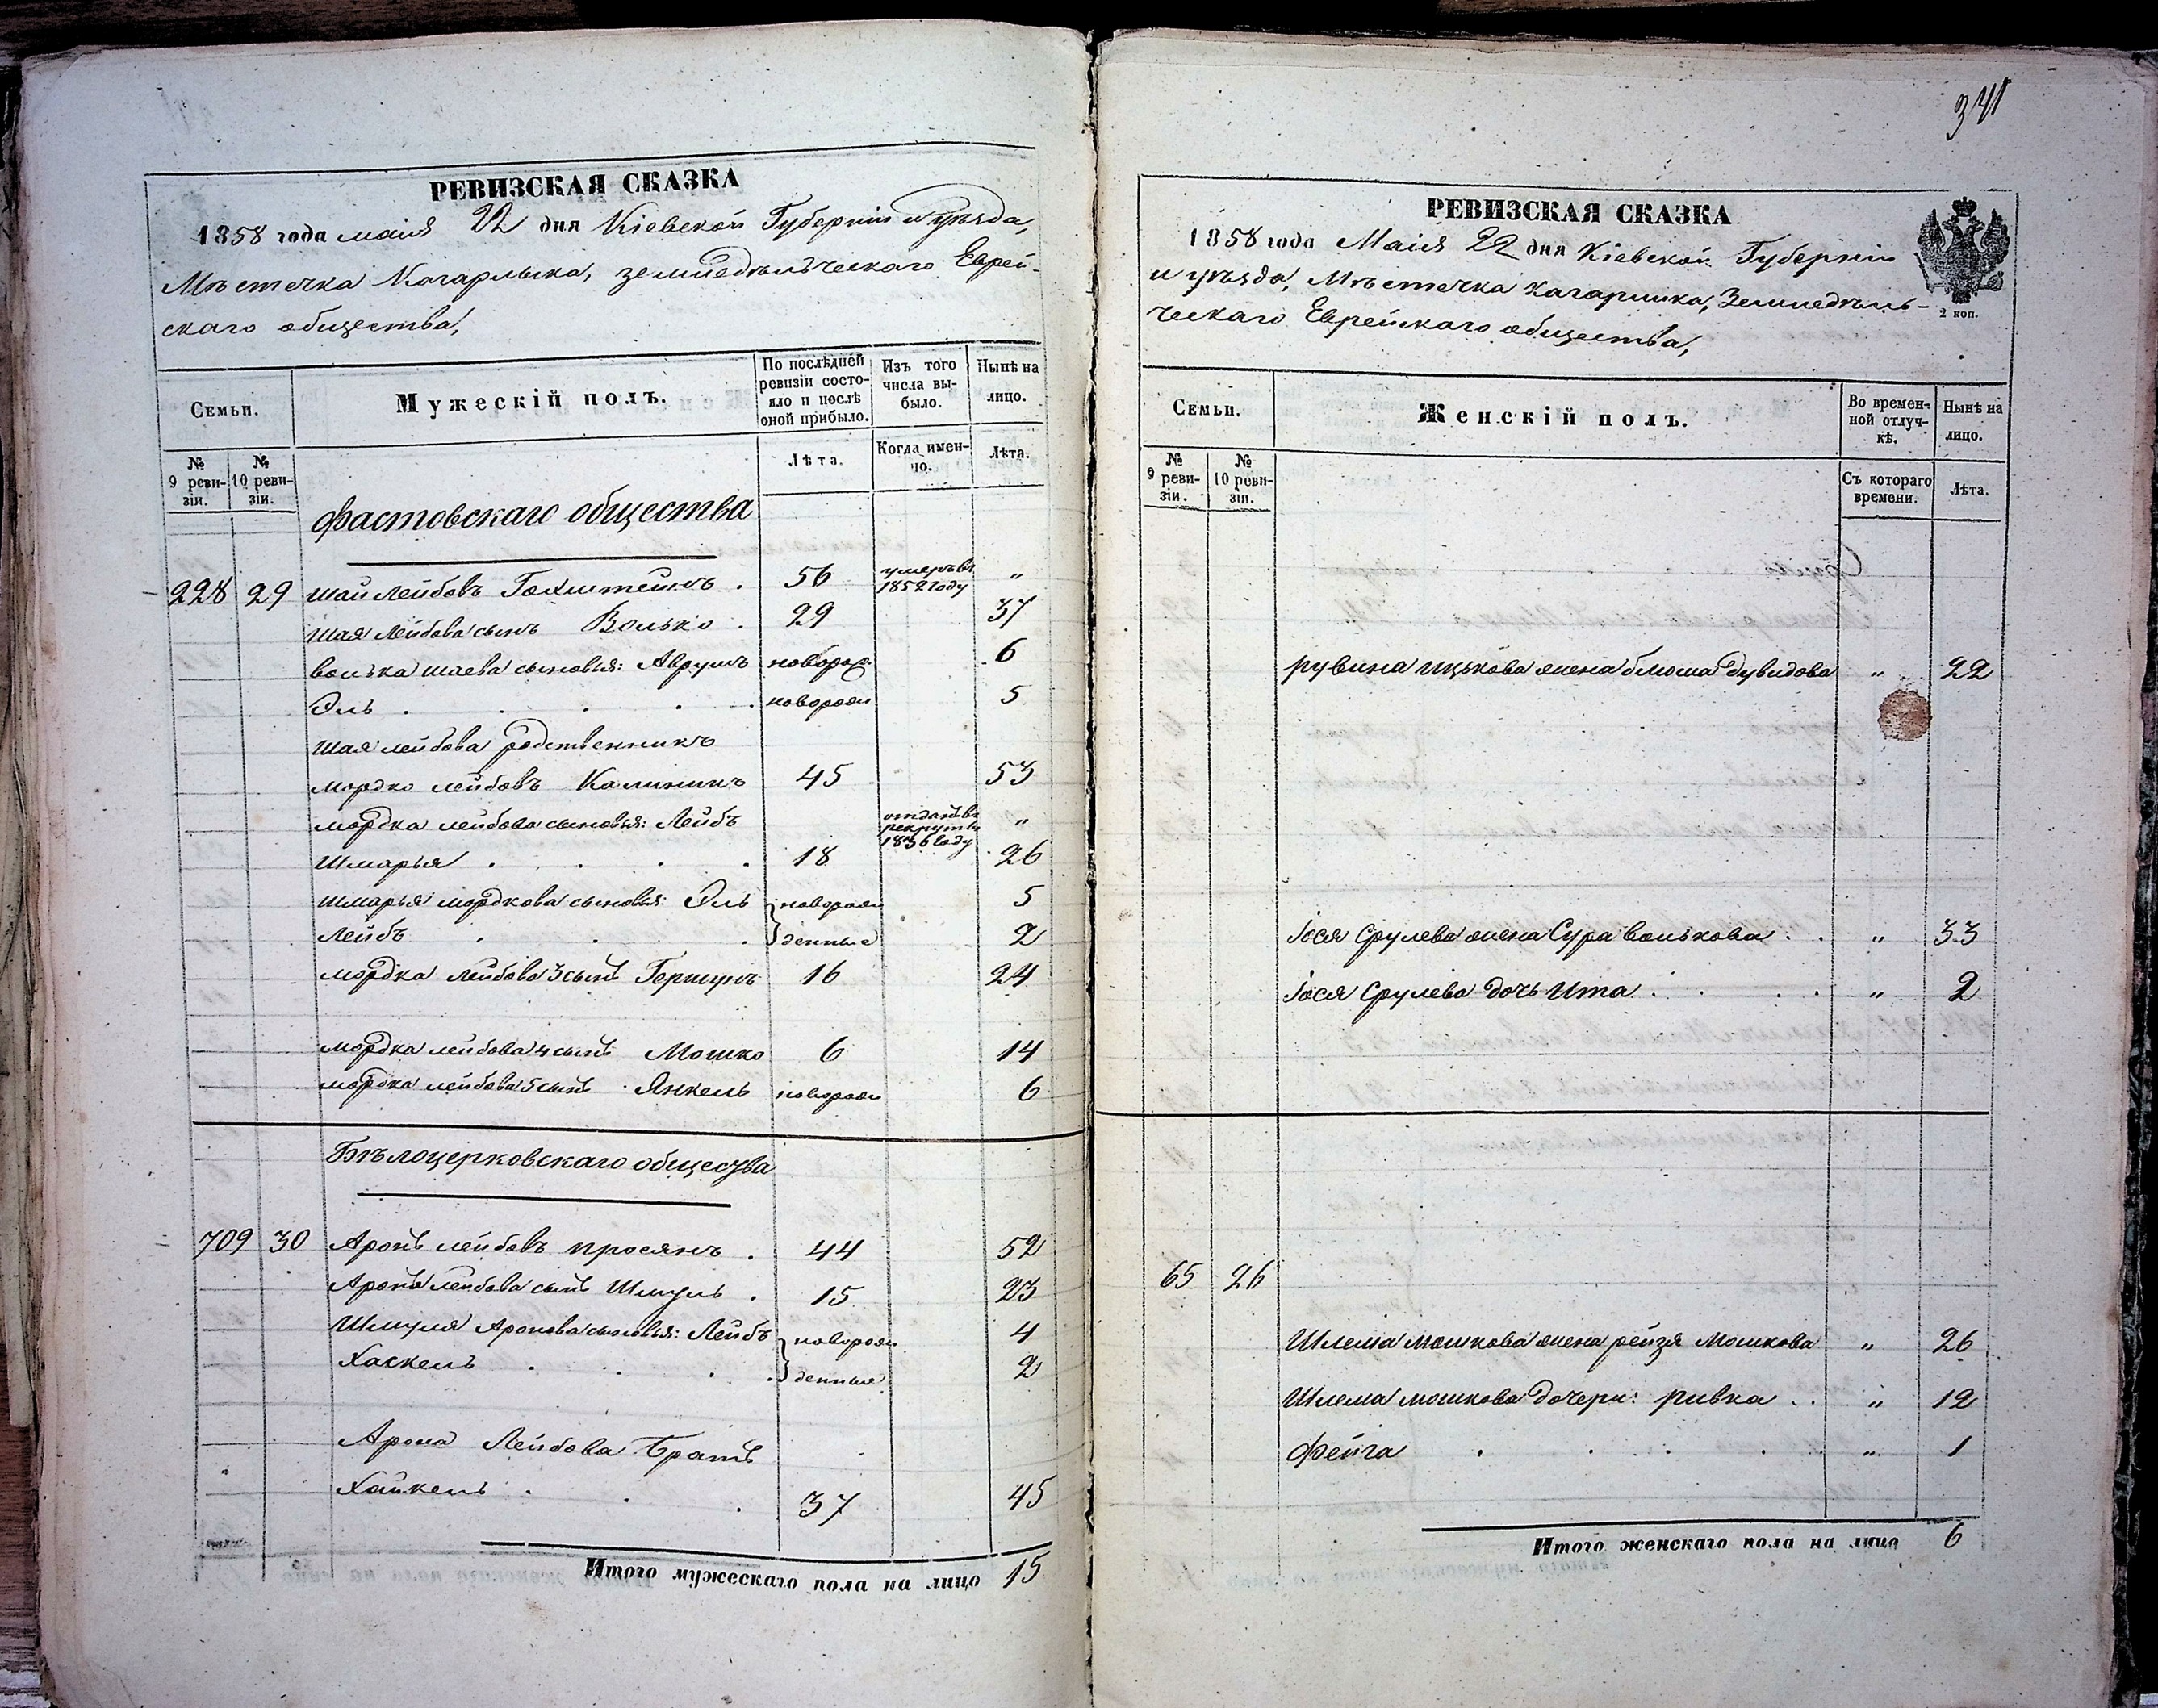 РЕВИЗСКАЯ СКАЗКА
1858 года маія 22 дня Кіевской Губерніи и уѣзда,
Мѣстечка Кагарлыка, земледѣльческаго Еврей-
скаго общества,
Семьи.
Мужескій полъ.
По послѣдней ревизіи состояло и послѣ оной прибыло.
Изъ того числа выбыло.
Нынѣ на лицо.
№ 9 ревизіи.
№ 10 ревизіи.
Лѣта.
Когда именно.
Лѣта.
Фастовскаго общества
228 29 Шай Лейбовъ . 56 умеръ въ 1852 году "
Шая Лейбова сынъ Волько . 29 37
Волька Шаева сыновья: Аврумъ новорож. 6
Эль . . . . новорож 5
Шая Лейбова родственникъ
Мордко Лейбовъ 45 53
Мордка Лейбова сыновья: Лейбъ отданъ въ рекруты "
Шмарья . . . . 18 26
Шмарья Мордкова сыновья: Эль новорож 5
Лейбъ . . . . денные 2
Мордка Лейбова 3 сынъ Гершунъ 16 24
Мордка Лейбова 4 сынъ Мошко 6 14
Мордка Лейбова 5 сынъ Янкель новорож 6
Бѣлоцерковскаго общества
709 30 Аронъ Лейбовъ просянъ . 44 52
Арона Лейбова сынъ Шмуль . 15 23
Шмуля Аронова сыновья: Лейбъ новорож 4
Хаскель . . . . денные 2
Арона Лейбова Братъ
Хайкель . . . 37 45
Итого мужескаго пола на лицо 15
341
РЕВИЗСКАЯ СКАЗКА
1858 года Маія 22 дня Кіевской Губерніи
и уѣзда, Мѣстечка Кагарлика, Земледѣль-
ческаго Еврейскаго общества,
2 коп.
Семьи.
Женскій полъ.
Во временной отлучкѣ.
Нынѣ на лицо.
№ 9 ревизіи.
№ 10 ревизіи.
Съ котораго времени.
Лѣта.
рувина ицькова жена блюма дувидова " 22
Іося Срулева жена Сура волькова . . " 33
Іося Срулева дочь Ита . . . " 2
65 26
Шлема мошкова жена рейзя мошкова " 26
Шлема мошкова дочери: ривка . . " 12
Фейга . . . . " 1
Итого женскаго пола на лицо 6